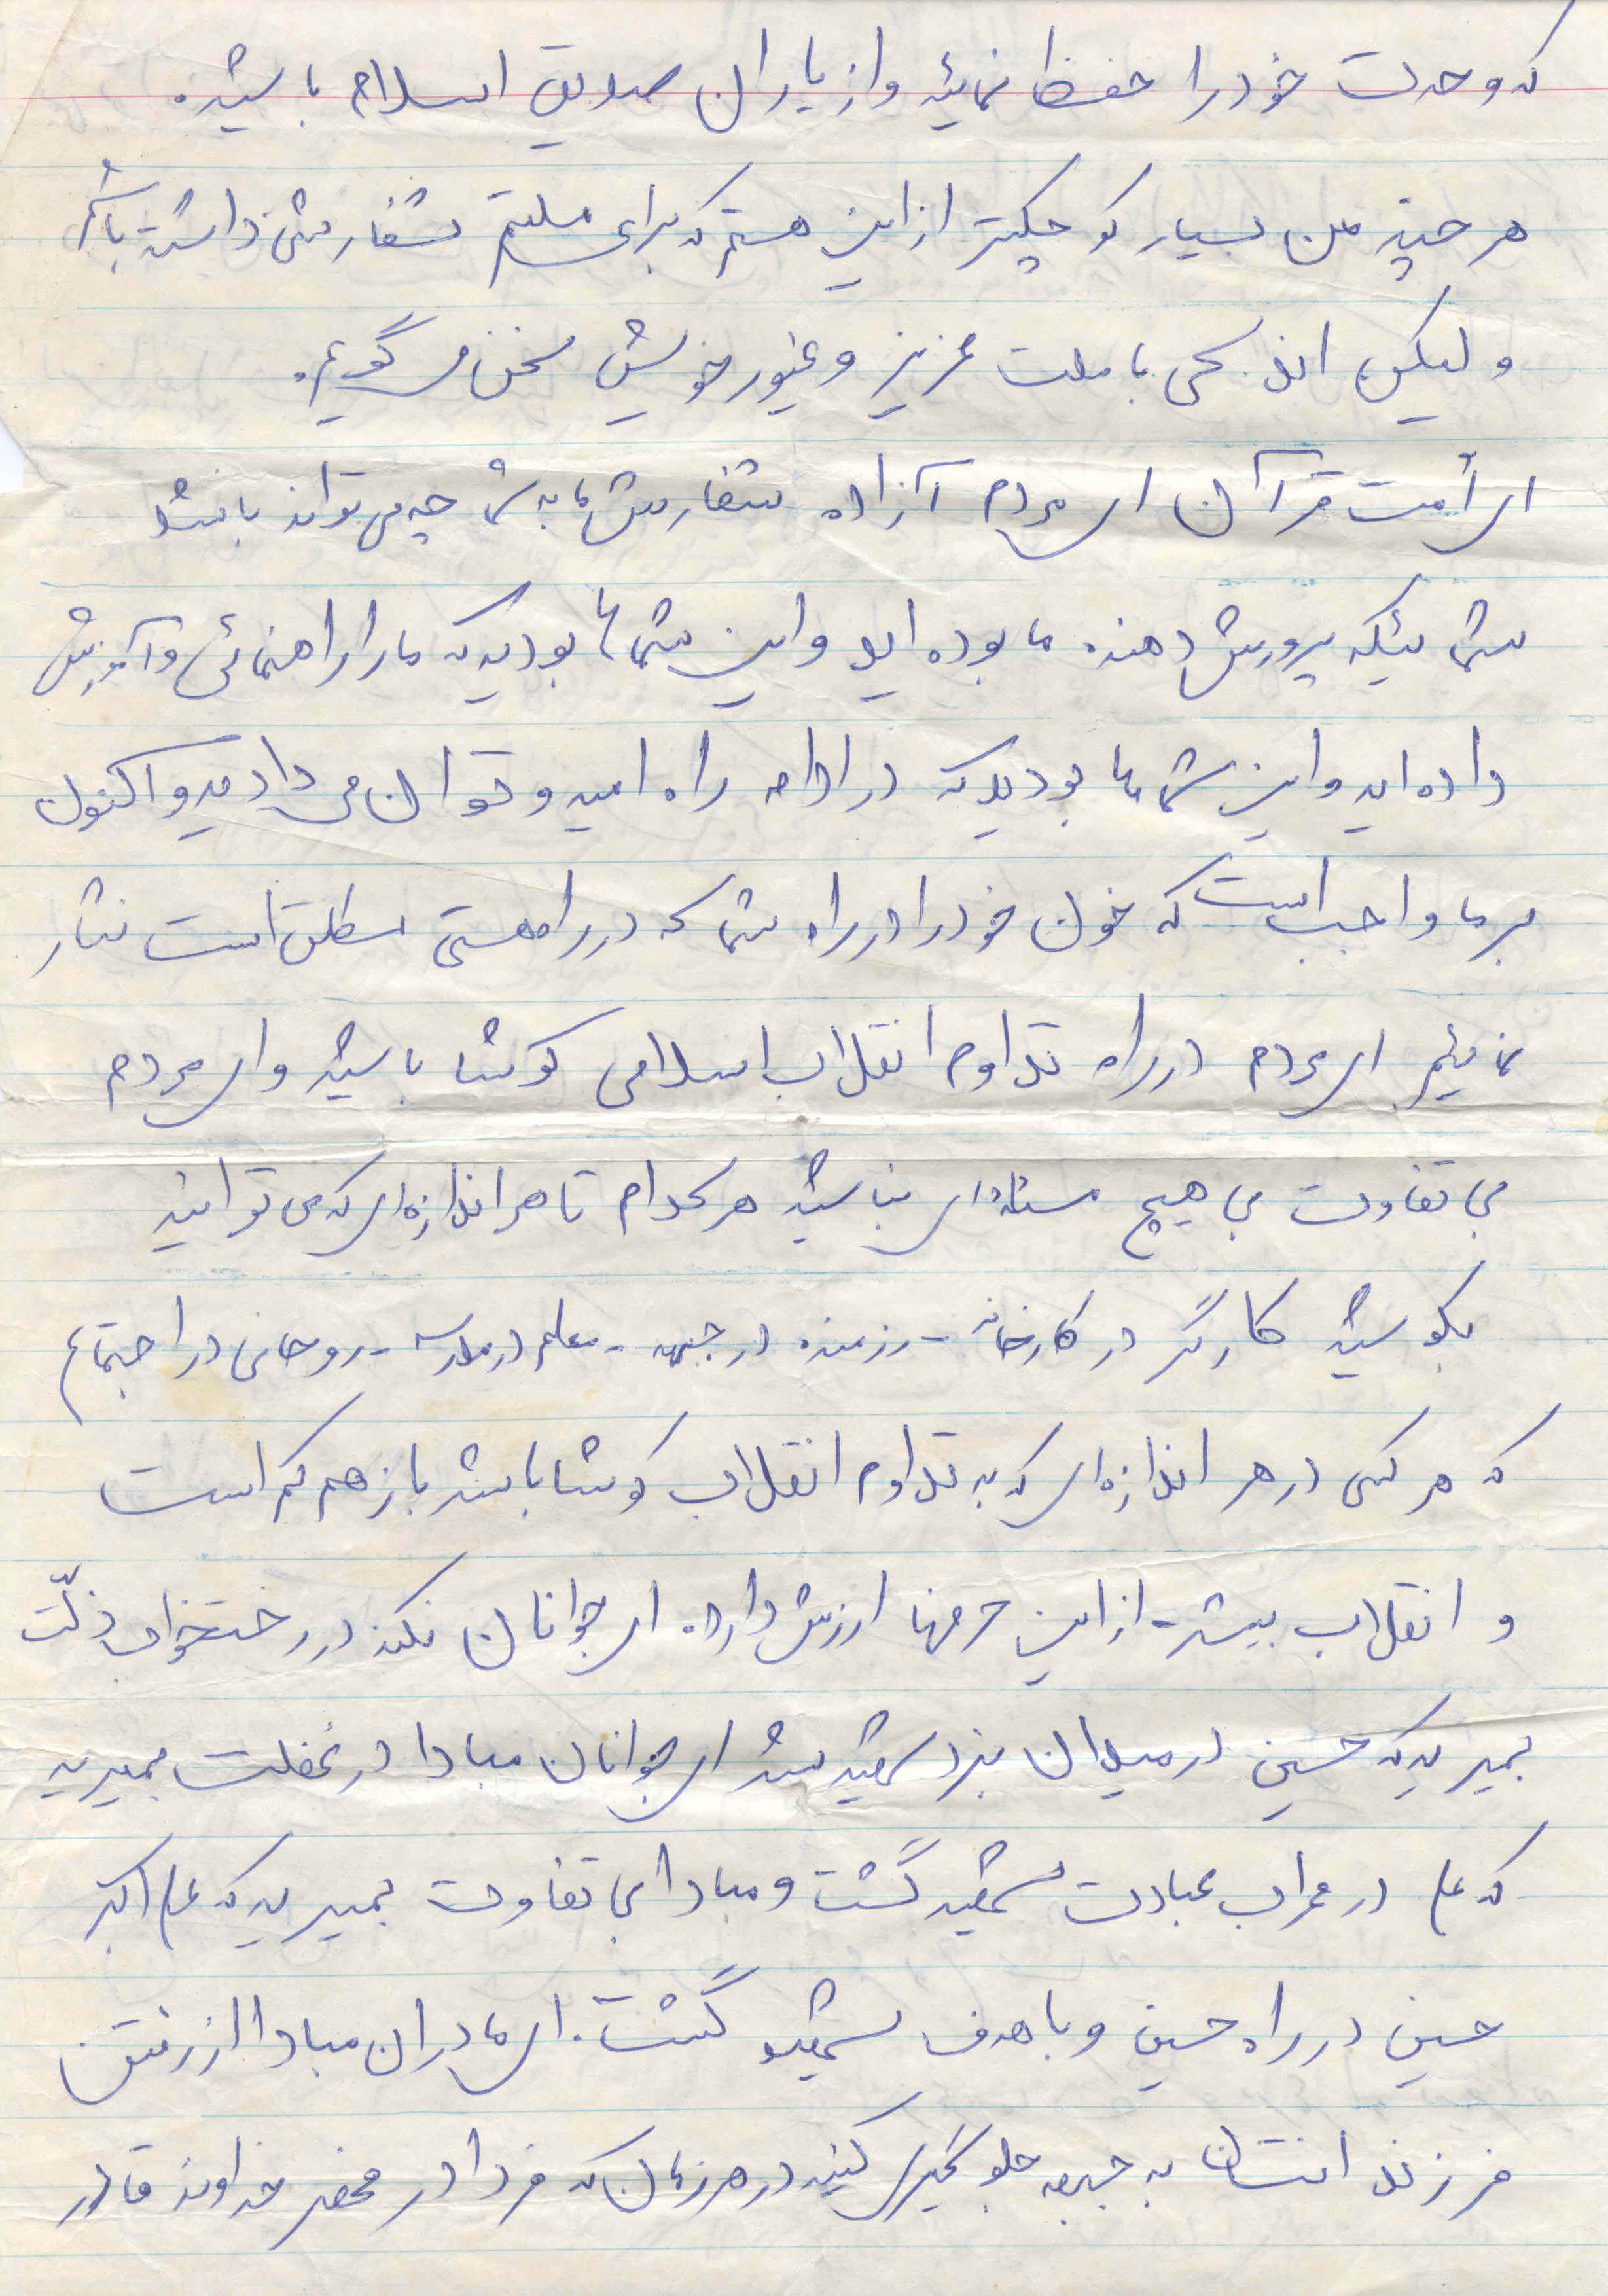 که وحدت خود را حفظ نمائید و از یاران صدیق اسلام باشید.
هر چند من بسیار کوچکتر از این هستم که برای ملتم سفارشی داشته باشم
ولیکن اندکی با ملت عزیز و غیور خویش سخن می گویم.
ای امت قرآن ای مردم آزاده سفارش ما به شما چه می تواند باشد
شمائیکه پرورش دهنده ما بوده اید و این شماها بودید که ما را راهنمائی و آموزش
داده اید و این شماها بودید که در ادامه راه امید و توان می دادید و اکنون
بر ما واجب است که خون خود را در راه شما که در راه هستی مطلق است نثار
نمائیم ای مردم در راه تداوم انقلاب اسلامی کوشا باشید و ای مردم
بی تفاوت بی هیچ مسئله ای نباشید هر کدام تا هر اندازه ای که می توانید
بکوشید کارگر در کارخانه - رزمنده در جبهه - معلم در مدرسه - روحانی در اجتماع
که هر کسی در هر اندازه ای که به تداوم انقلاب کوشا باشد باز هم کم است
و انقلاب بیشتر از این حرفها ارزش دارد. ای جوانان نکند در رختخواب ذلّت
بمیرید که حسین در میدان نبرد شهید شد ای جوانان مبادا در غفلت بمیرید
که علی در محراب عبادت شهید گشت و مبادا بی تفاوت بمیرید که علی اکبر
حسین در راه حسین و با هدف شهید گشت. ای مادران مبادا از رفتن
فرزندانتان به جبهه جلوگیری کنید در هر زمان که فردا در محضر خداوند قادر